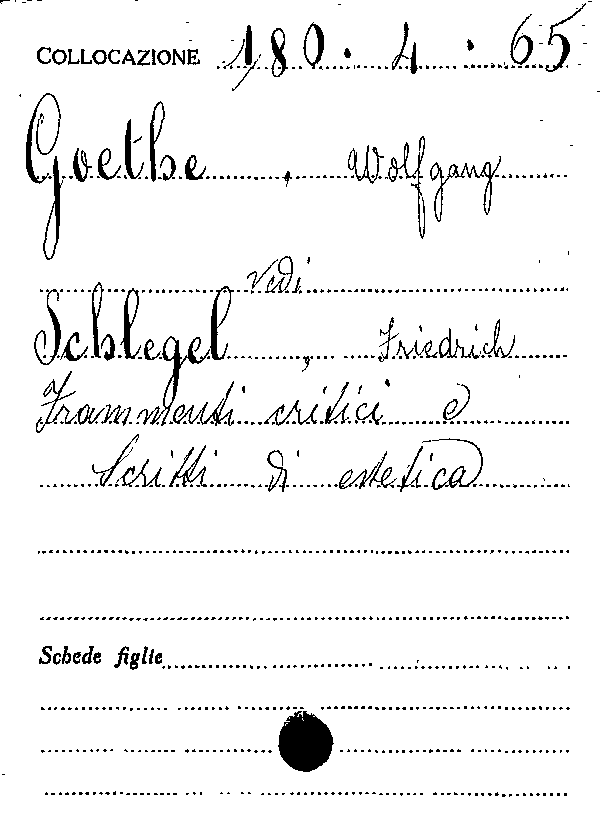 COLLOCAZIONE 180. 4. 65
Goethe, Wolfgang
vedi
Schlegel, Friedrich
Frammenti critici e
Scritti di estetica
Schede figlie